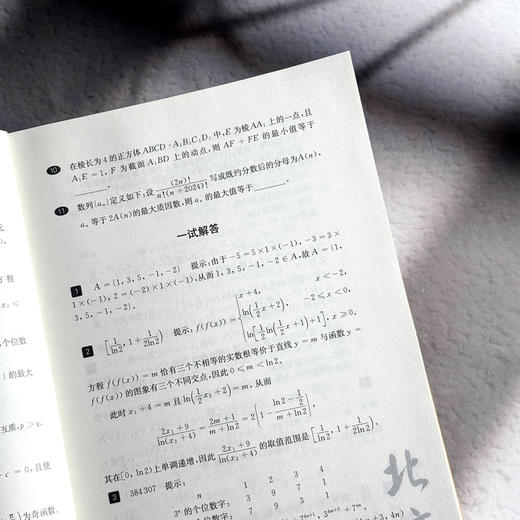 10 在棱长为 4 的正方体 ABCD-A₁B₁C₁D₁ 中, E 为棱 AA₁ 上的一点, 且
A₁E=1, F 为截面 A₁BD 上的动点, 则 AF+FE 的最小值等于
______。
11 数列{aₙ}定义如下:设 (2n)!/(n!(n+2024)!) 写成既约分数后的分母为 A(n),
aₙ 等于 2A(n)的最大质因数, 则 aₙ 的最大值等于______。
一试解答
1 A={1, 3, 5, -1, -2} 提示:由于 -5=5×1×(-1), -3=3×
1×(-1), 2=(-2)×1×(-1), 从而 1, 3, 5, -1, -2∈A, 故 A={1,
3, 5, -1, -2}.
2 [1/ln2, 1+1/(2ln2)) 提示: f(f(x))={x+4, x<-2,
ln(1/2x+2), -2≤x<0,
ln[1/2ln(1/2x+1)+1], x≥0.
方程 f(f(x))=m 恰有三个不相等的实数根等价于直线 y=m 与函数 y=
f(f(x))的图象有三个不同交点, 因此 0≤m<ln2.
此时 x₁+4=m 且 ln(1/2x₂+2)=m, 从而
(2x₁+9)/ln(x₂+4)=(2m+1)/(m+ln2)=2(1-(ln2-1/2)/(m+ln2)),
其在[0, ln2)上单调递增, 因此 (2x₁+9)/ln(x₂+4) 的取值范围是 [1/ln2, 1+1/(2ln2)).
3 384307 提示:
n 1 2 3 4
3ⁿ 的个位数字: 3 9 7 1
的个位数字: 7 9 3 1
3⁴ᵐ⁺¹+7⁴ⁿ,
方程
x₂<
个位数
|的最大
互质, p>q.
-c=0, 且使
)为奇函数.
北